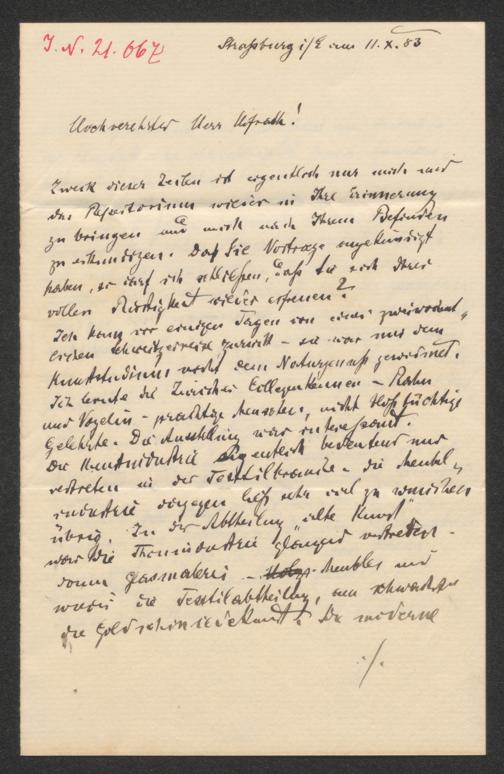 J. N. 21.667
Straßburg i/E am 11. X. 83
Hochverehrter Herr Hofrath!
Zweck dieser Zeilen ist eigentlich nur mich und
das Repertorium wieder in Ihre Erinnerung
zu bringen und mich nach Ihrem Befinden
zu erkundigen. Daß Sie Vorträge angekündigt
haben, so darf ich schließen, daß Sie sich Ihrer
vollen Rüstigkeit wieder erfreuen?
Ich kam vor einigen Tagen von einer zweiwöchent-
lichen Schweizerreise zurück – sie war nur dem
Kunststudium nicht dem Naturgenuß gewidmet.
Ich lernte die Züricher Collegen kennen – Rahn
und Vögelin – prächtige Menschen, nicht bloß tüchtige
Gelehrte. Die Ausstellung war interessant.
Die Kunstindustrie eigentlich bedeutend nur
vertreten in der Textilbranche – die Meubel-
industrie dagegen ließ sehr viel zu wünschen
übrig. In der Abtheilung "alte Kunst"
war die Thonindustrie glänzend vertreten –
dann Glasmalerei – Meubles und
die Textilabtheilung, am schwächsten
die Goldschmiedekunst. Die moderne
./.